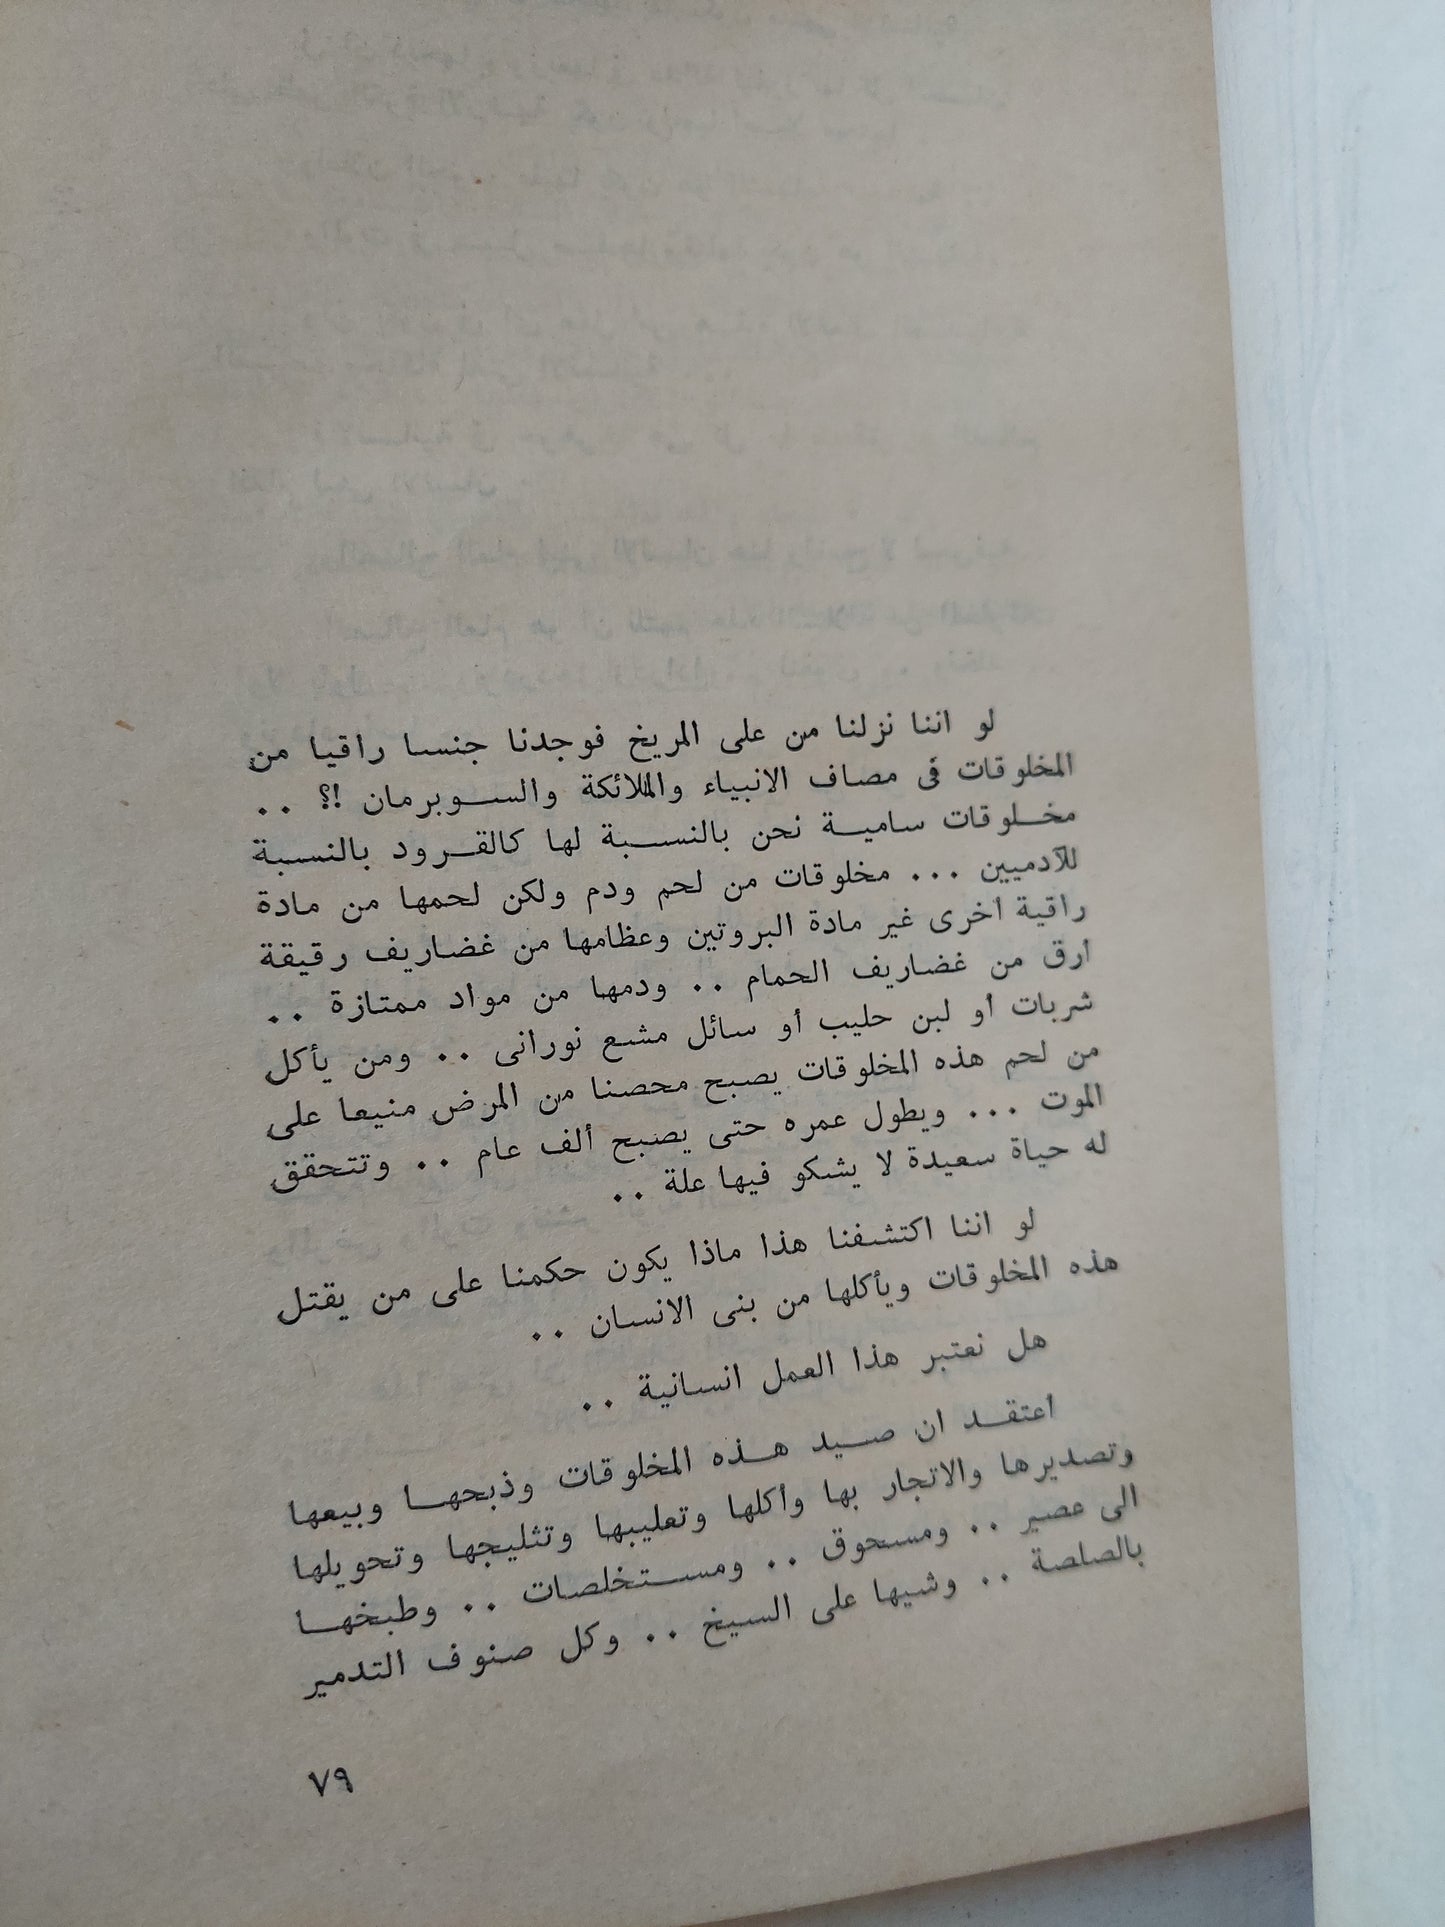 لو اننا نزلنا من على المريخ فوجدنا جنسا راقيا من
المخلوقات فى مصاف الانبياء والملائكة والسوبرمان !؟ ..
مخلوقات سامية نحن بالنسبة لها كالقرود بالنسبة
للآدميين ... مخلوقات من لحم ودم ولكن لحمها من مادة
راقية أخرى غير مادة البروتين وعظامها من غضاريف رقيقة
أرق من غضاريف الحمام .. ودمها من مواد ممتازة ..
شربات أو لبن حليب أو سائل مشع نورانى .. ومن يأكل
من لحم هذه المخلوقات يصبح محصنا من المرض منيعا على
الموت ... ويطول عمره حتى يصبح ألف عام .. وتتحقق
له حياة سعيدة لا يشكو فيها علة ..
لو اننا اكتشفنا هذا ماذا يكون حكمنا على من يقتل
هذه المخلوقات ويأكلها من بنى الانسان ..
هل نعتبر هذا العمل انسانية ..
اعتقد ان صيد هذه المخلوقات وذبحها وبيعها
وتصديرها والاتجار بها وأكلها وتعليبها وتثليجها وتحويلها
الى عصير .. ومسحوق .. ومستخلصات .. وطبخها
بالصلصة .. وشيها على السيخ .. وكل صنوف التدمير
٧٩